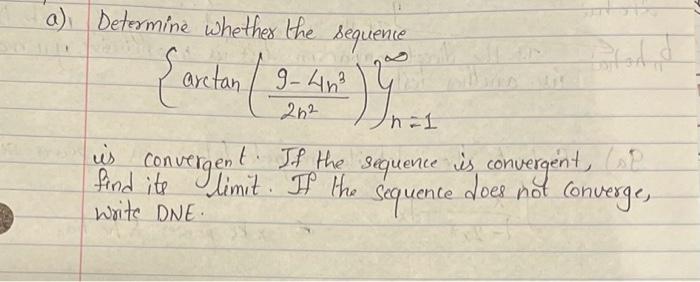 a) Determine whether the sequence
{ arctan ( (9-4n³)/(2n²) ) }^∞_{n=1}
is convergent. If the sequence is convergent,
find its limit. If the sequence does not converge,
write DNE.